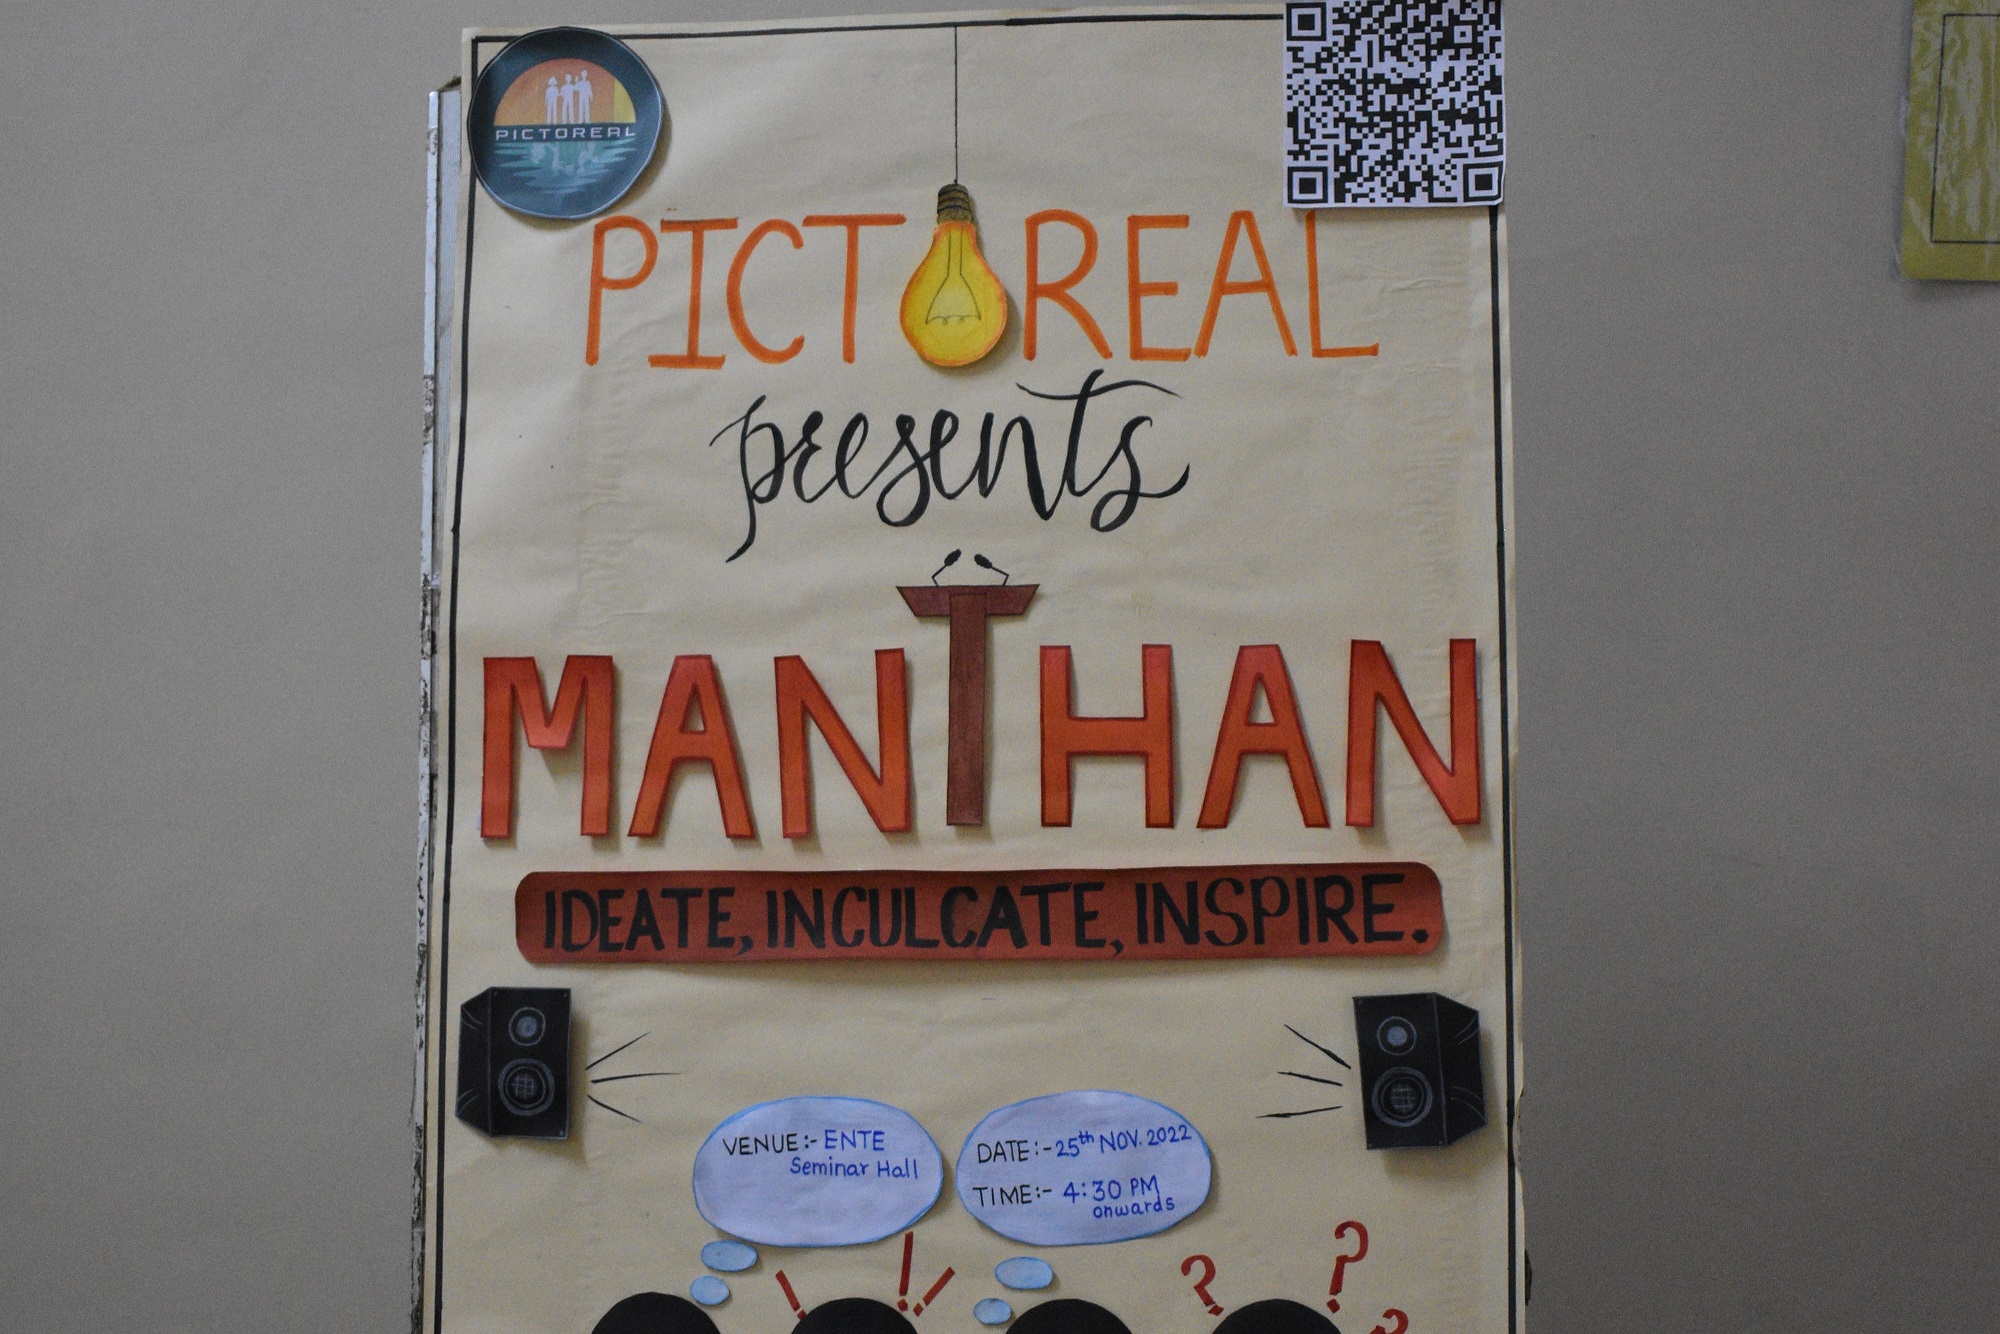 PICTOREAL
PICTOREAL
presents
MANTHAN
IDEATE, INCULCATE, INSPIRE.
VENUE:- ENTE
Seminar Hall
DATE:- 25th NOV. 2022
TIME:- 4:30 PM
onwards
! ! !
? ? ?